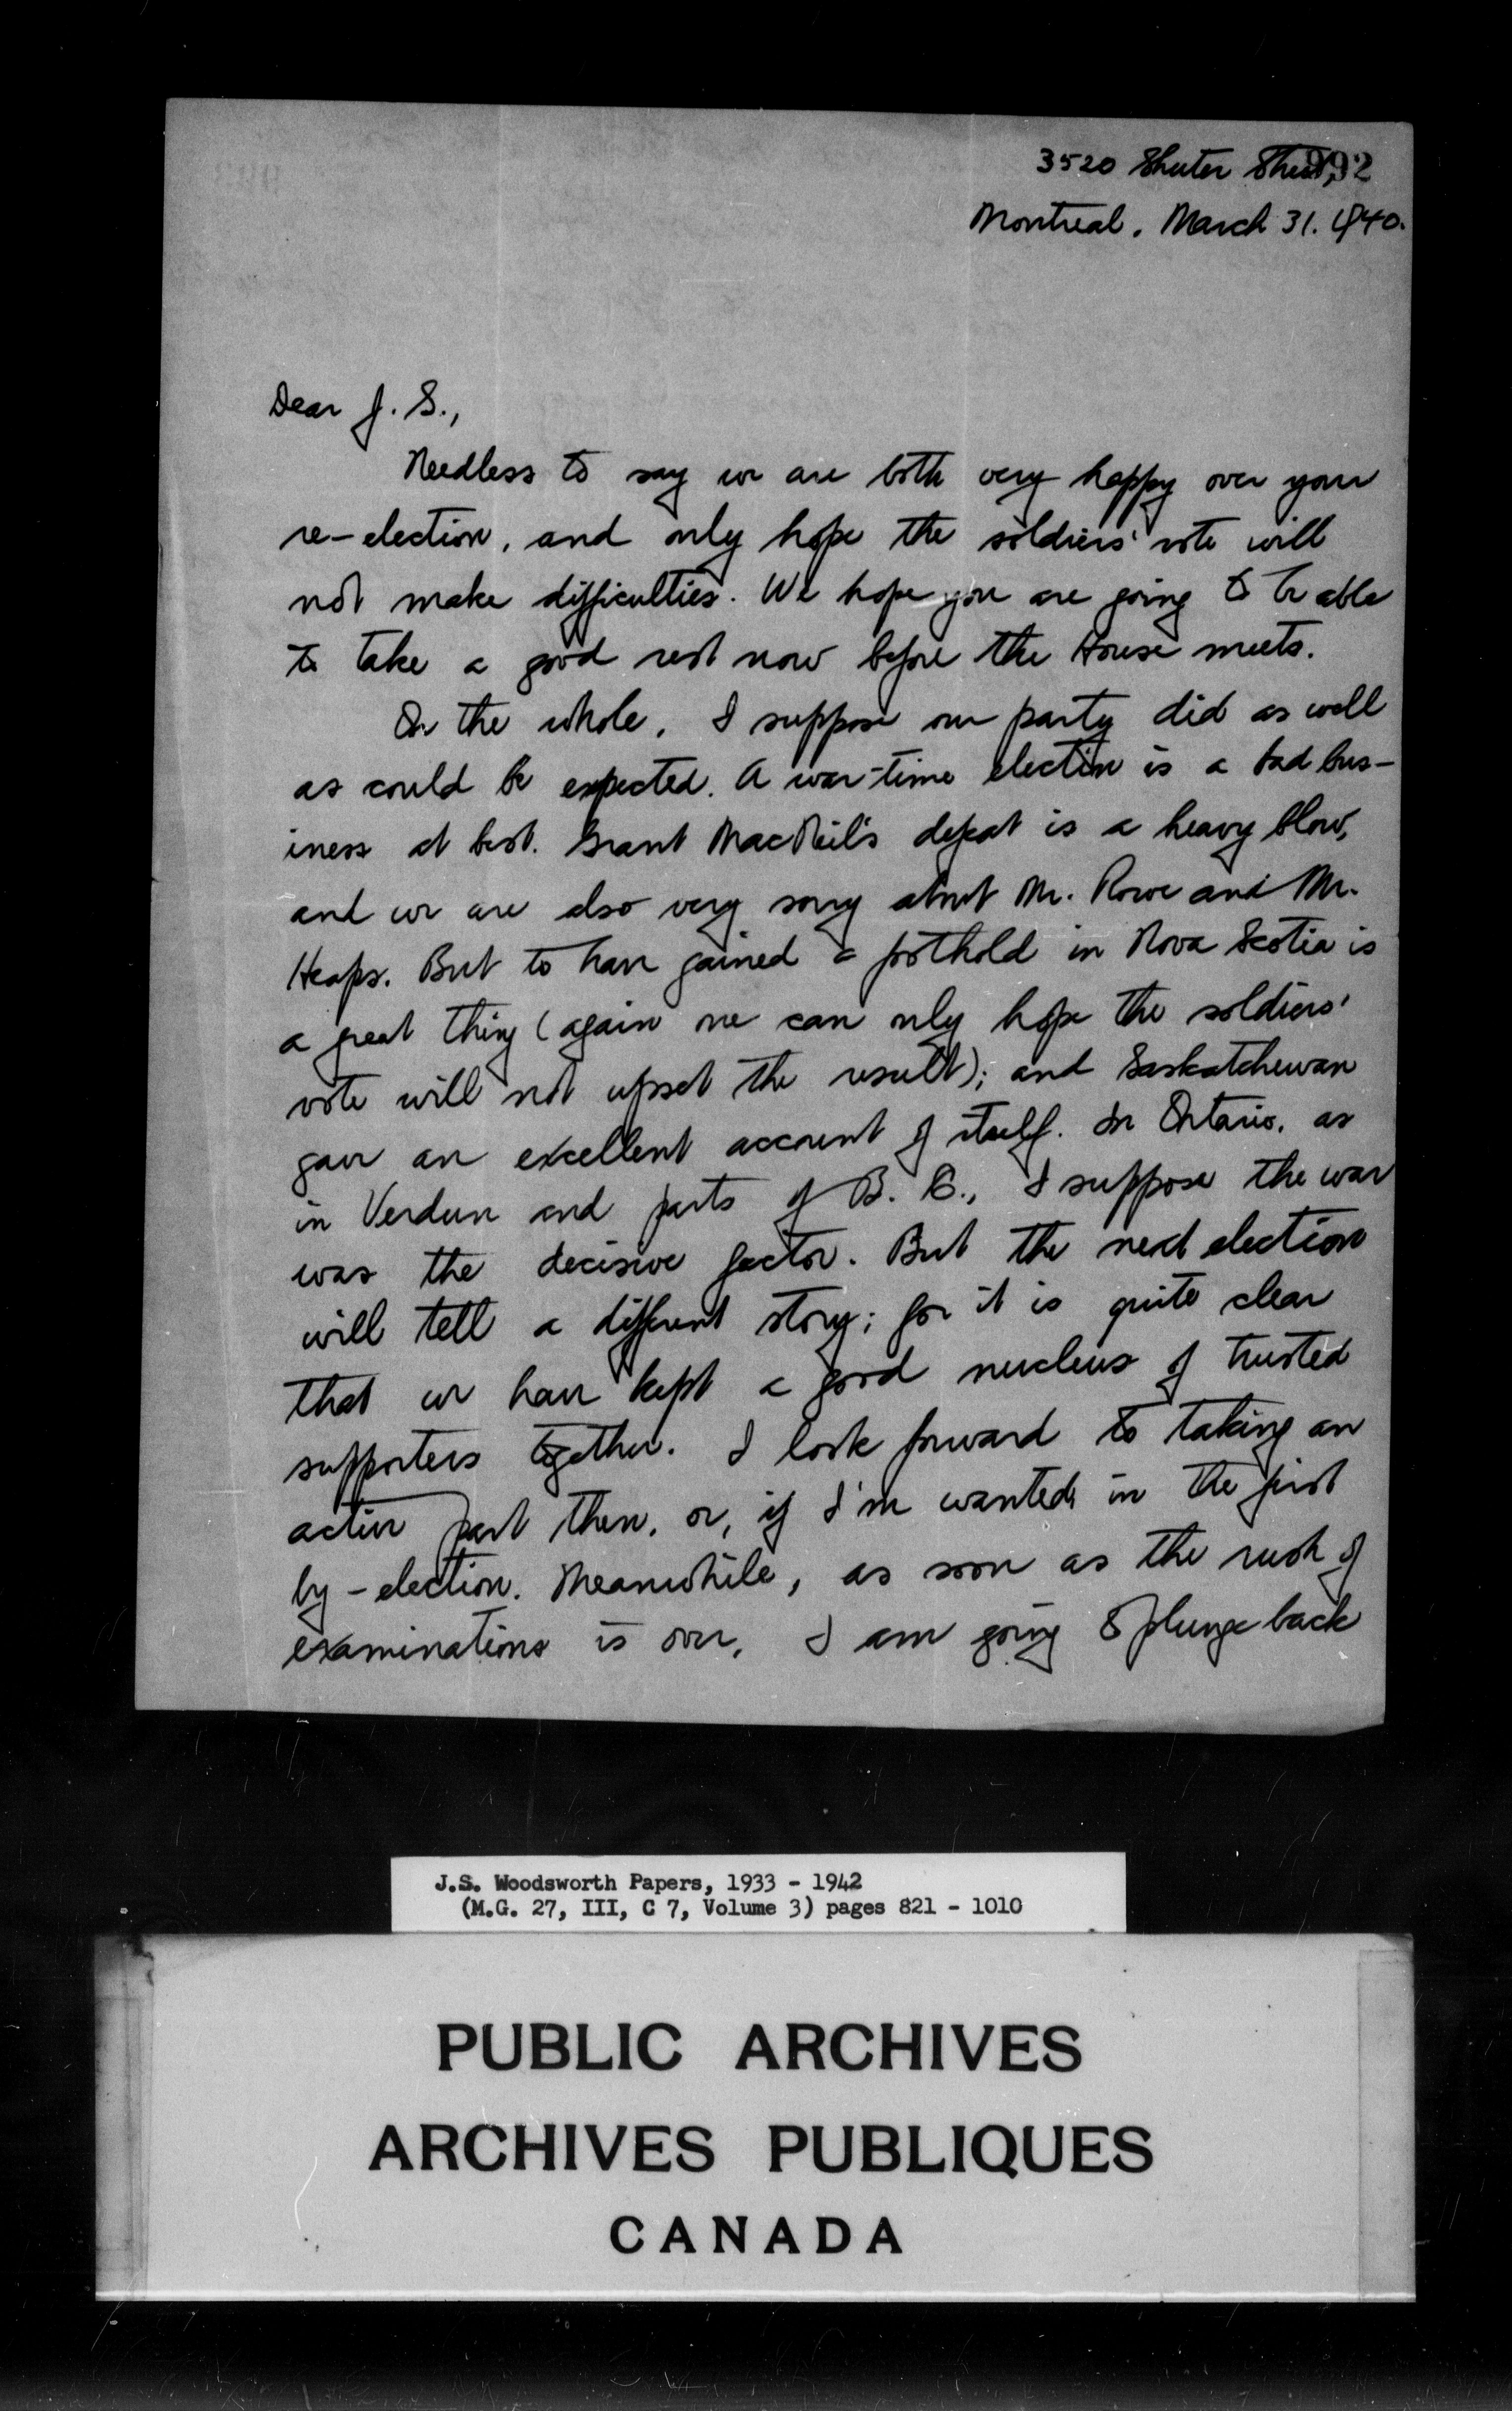 3520 Shuter Street,
992
Montreal. March 31. 1940.
Dear J. S.,
Needless to say we are both very happy over your
re-election, and only hope the soldiers' vote will
not make difficulties. We hope you are going to be able
to take a good rest now before the House meets.
On the whole, I suppose our party did as well
as could be expected. A war-time election is a bad bus-
iness at best. Grant MacNeil's defeat is a heavy blow,
and we are also very sorry about Mr. Rowe and Mr.
Heaps. But to have gained a foothold in Nova Scotia is
a great thing (again one can only hope the soldiers'
vote will not upset the result); and Saskatchewan
gave an excellent account of itself. In Ontario, as
in Verdun and parts of B. C., I suppose the war
was the decisive factor. But the next election
will tell a different story; for it is quite clear
that we have kept a good nucleus of trusted
supporters together. I look forward to taking an
active part then, or, if I'm wanted, in the first
by-election. Meanwhile, as soon as the rush of
examinations is over, I am going to plunge back
J.S. Woodsworth Papers, 1933 - 1942
(M.G. 27, III, C 7, Volume 3) pages 821 - 1010
PUBLIC ARCHIVES
ARCHIVES PUBLIQUES
CANADA